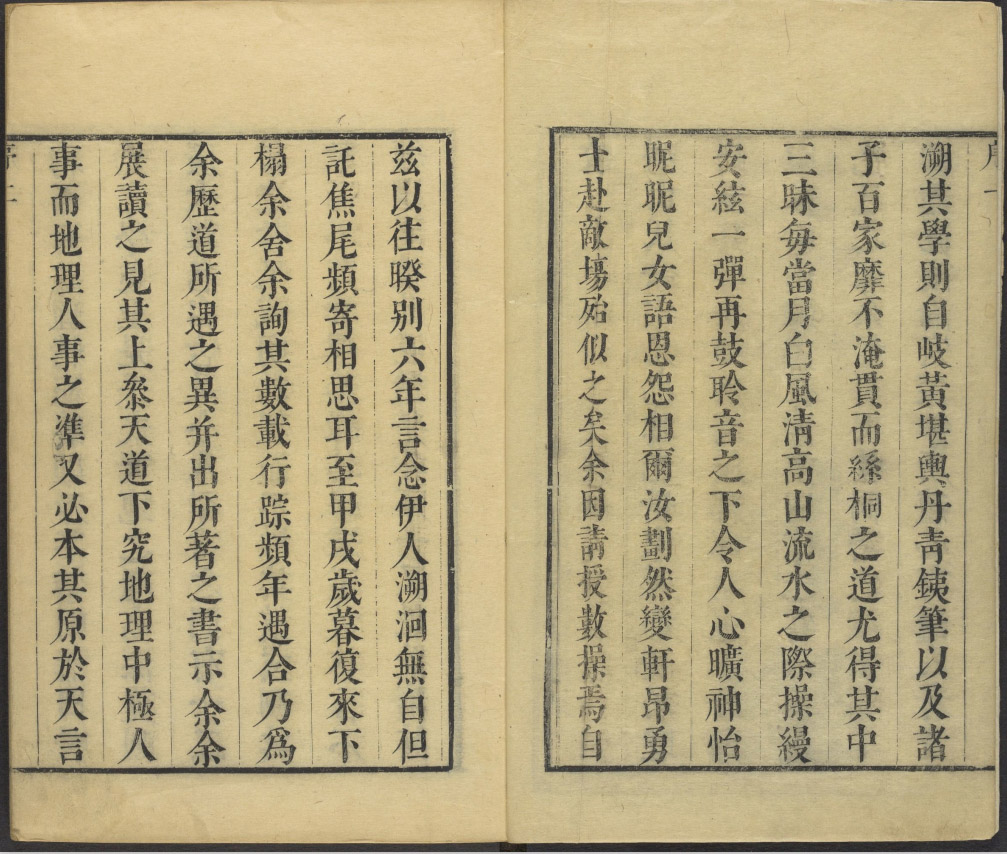 溯其學則自岐黃堪輿丹青鐵筆以及諸
子百家靡不淹貫而絲桐之道尤得其中
三昧每當月白風清高山流水之際操縵
安絃一彈再鼓聆音之下令人心曠神怡
昵昵兒女語恩怨相爾汝劃然變軒昂勇
士赴敵場殆似之矣余因請授數操焉自
茲以往暌別六年言念伊人溯洄無自但
託焦尾頻寄相思耳至甲戌歲暮復來下
榻余舍余詢其數載行踪頻年遇合乃為
余歷道所遇之異并出所著之書示余余
展讀之見其上叅天道下究地理中極人
事而地理人事之準又必本其原於天言